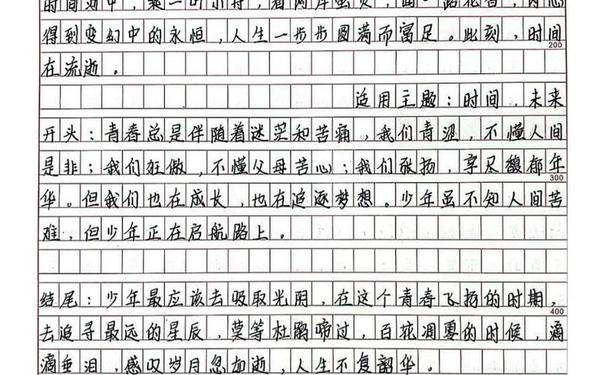 得到变幻中的永恒，人生一步步圆满而富足。此刻，时间
200
在流逝。
适用主题：时间，未来
开头：青春总是伴随着迷茫和苦痛，我们青涩，不懂人间
是非；我们狂傲，不懂父母苦心；我们张扬，享尽馥郁年
300
华。但我们也在成长，也在追逐梦想。少年虽不知人间苦
难，但少年正在启航路上。
结尾：少年最应该去吸取光阴，在这个青春飞扬的时期，
400
去追寻最远的星辰，莫等杜鹃啼过，百花凋零的时候，滴
滴垂泪，感叹岁月忽如逝，人生不复韶华。